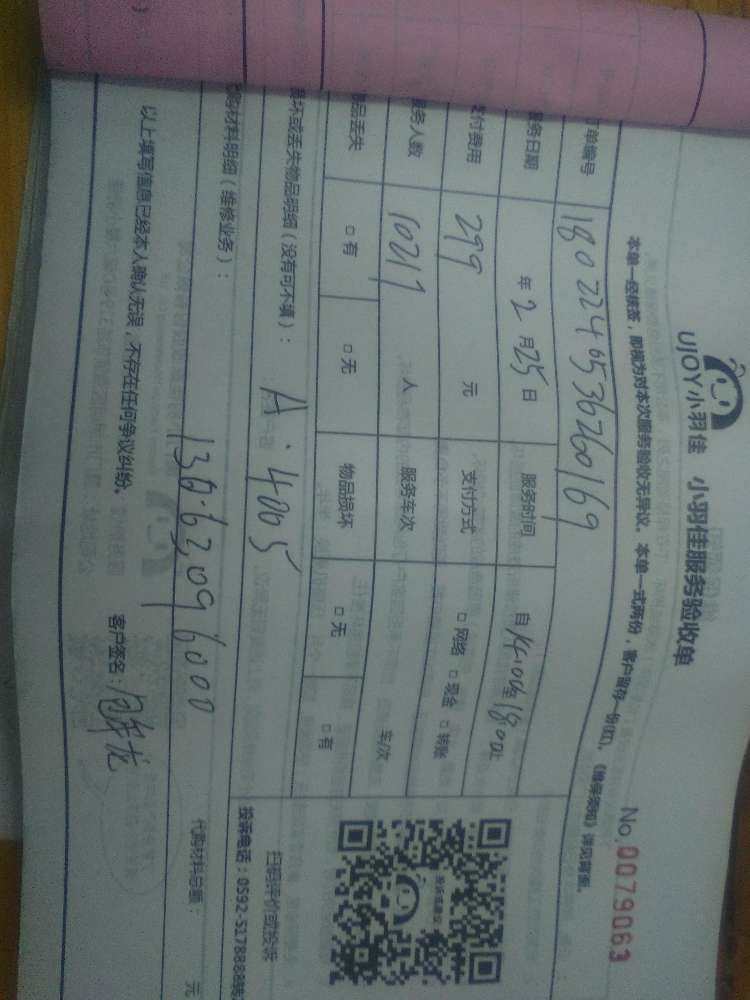 UJOY小羽佳 小羽佳服务验收单
No.0079063
本单一经核签，即视为对本次服务验收无异议。本单一式两份，客户留存一份(红)，《维保须知》详见背面。
单编号 180224053626016９
服务日期 年2月25日 服务时间 自14:00至18:00止
支付费用 299 元 支付方式 □网络 □现金 □转账
服务人数 10217 人 服务车次 车次
物品丢失 □有 □无 物品损坏 □无 □有
损坏或丢失物品明细（没有可不填）： A·4005
扫码评价或投诉
投诉电话：0592-5178888转
代购材料明细（维修业务）： 13063096000 代购材料总额： 元
以上填写信息已经本人确认无误，不存在任何争议纠纷。 客户签名：